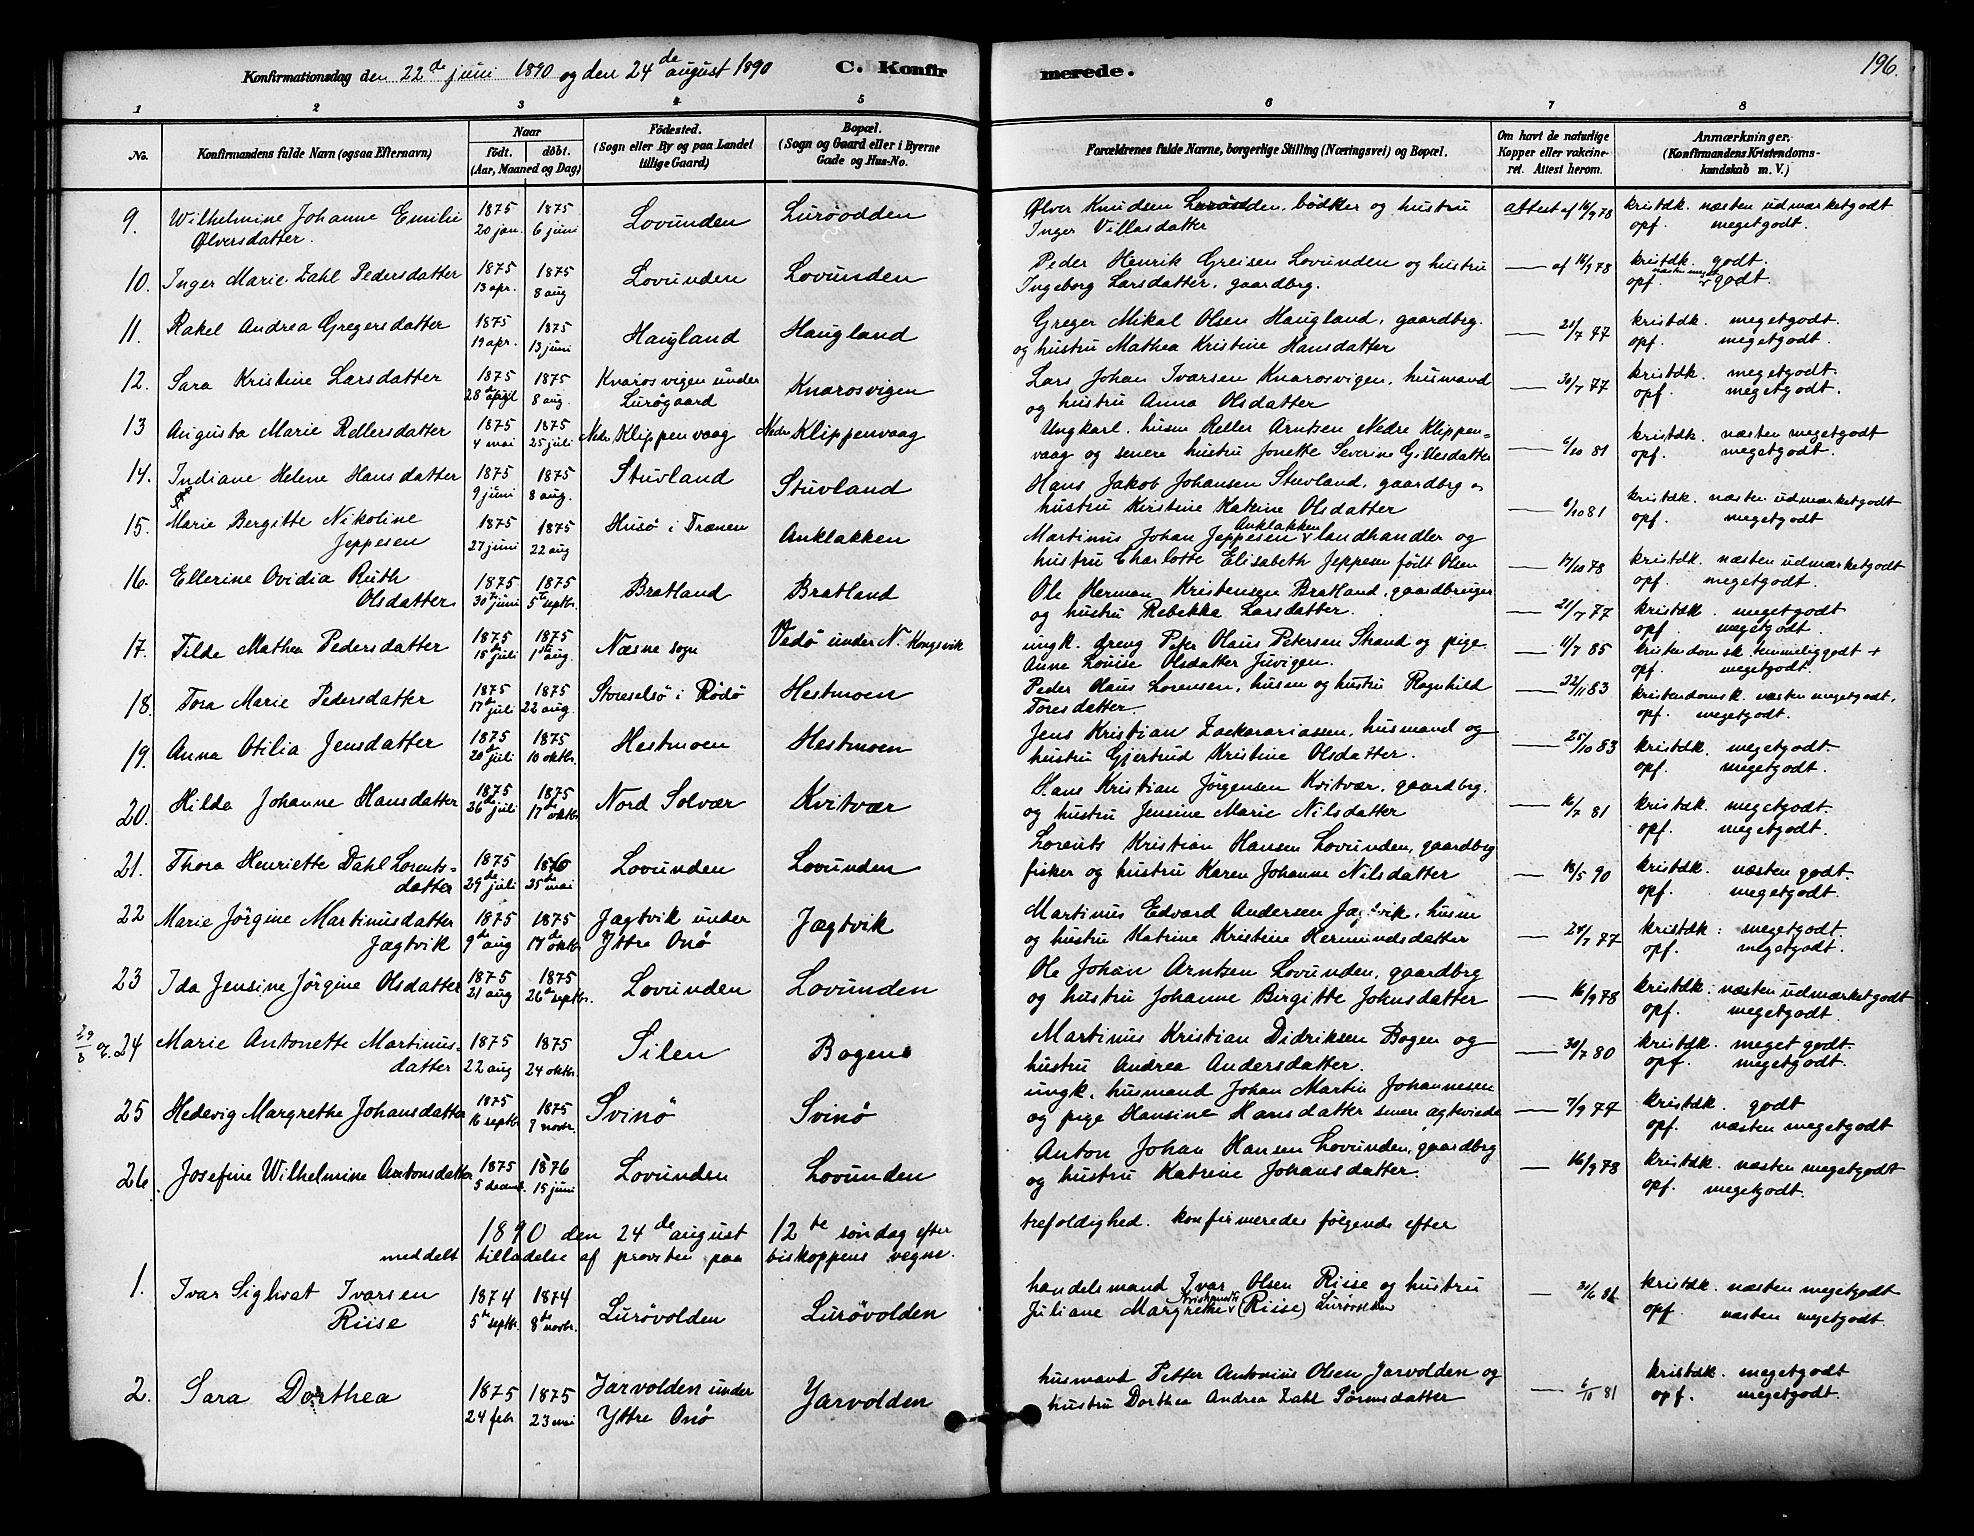 Konfirmationsdag den 22de juni 1890 og den 24de august 1890
C. Konfirmerede.
196.
1 2 3 4 5 6 7 8
No.
Konfirmandens fulde Navn (ogsaa Efternavn)
Naar
födt. döbt.
(Aar, Maaned og Dag)
Födested.
(Sogn eller By og paa Landet
tillige Gaard)
Bopæl.
(Sogn og Gaard eller i Byerne
Gade og Hus-No.
Forældrenes fulde Navne, borgerlige Stilling (Næringsvei) og Bopæl.
Om havt de naturlige
Kopper eller vakcine-
ret. Attest herom.
Anmærkninger.
(Konfirmandens Kristendoms-
kundskab m. V.)
9. Wilhelmine Johanne Emilie 1875 1875 Lovunden Luröodden Ølver Knudsen bödker og hustru attest af 16/9 78 kristdk. næsten udmærketgodt
Ølversdatter. 20 jan. 6 juni Inger Villasdatter opf. megetgodt.
10. Inger Marie Zahl Pedersdatter 1875 1875 Lovunden Lovunden Peder Henrik Greisen Lovunden og hustru — af 16/9 78 kristdk. godt.
13 apr. 8 aug Ingeborg Larsdatter, gaardbrg. opf. næsten meget godt.
11. Rakel Andrea Gregersdatter 1875 1875 Haugland Haugland Greger Mikal Olsen Haugland, gaardbrg. — 21/7 77 kristdk. megetgodt.
19 apr. 13 juni og hustru Mathea Kristine Hansdatter opf. megetgodt.
12. Sara Kristine Larsdatter 1875 1875 Knarosvigen under Knarosvigen Lars Johan Ivarsen Knarosvigen, husmand — 30/7 77 kristdk. megetgodt.
28 april 8 aug. Lurögaard og hustru Anna Olsdatter opf. megetgodt.
13 Augusta Marie Rellersdatter 1875 1875 Nedre Klippenvaag Nedre Klippenvaag Ungkarl. husm Reller Arntsen Nedre Klippen= — 6/10 81 kristdk. næsten megetgodt
4 mai 25 juli vaag og senere hustru Jonette Severine Gillesdatter opf. megetgodt.
14. Indiane Helene Hansdatter 1875 1875 Stuvland Stuvland Hans Jakob Johansen Stuvland, gaardbrg o — 6/10 81 kristdk. næsten udmærketgodt
9 juni 8 aug. hustru Kristine Katrine Olsdatter opf. megetgodt
15. Marie Bergitte Nikoline 1875 1875 Husö i Trænen Anklakken Martinus Johan Jeppesen Anklakken landhandler og — 17/10 78 kristdk. næsten udmærketgodt
Jeppesen 27 juni 22 aug hustru Charlotte Elisabeth Jeppesen födt Olsen opf. megetgodt.
16. Ellerine Ovidia Ruth 1875 1875 Bratland Bratland Ole Herman Kristensen Bratland, gaardbruger — 21/7 77 kristdk. megetgodt
Olsdatter 30te juni 5te septbr. og hustru Rebekka Larsdatter. opf. megetgodt.
17. Tilde Mathea Pedersdatter 1875 1875 Næsne sogn Vedö under N. Kongsvik ungk. dreng Peter Olaus Petersen Strand og pige — 11/7 85 kristendomsk. temmeliggodt +
18de juli 1ste aug. Anne Lovise Olsdatter Juvigen. opf. megetgodt.
18. Tora Marie Pedersdatter 1875 1875 Storselsö i Rödö Hestmoen Peder Olaus Lorensen, husm og hustru Ragnhild — 22/11 83 kristendomsk. næsten megetgodt.
17de juli 22 aug. Toresdatter opf. megetgodt.
19. Anna Otilia Jensdatter 1875 1875 Hestmoen Hestmoen Jens Kristian Zackarariassen, husmand og — 25/10 83 kristdk. megetgodt
20de juli 10 oktbr. hustru Gjertrud Kristine Olsdatter. opf. megetgodt.
20. Hilda Johanne Hansdatter 1875 1875 Nord Solvær Kvitvær Hans Kristian Jörgensen Kvitvær, gaardbrg. — 16/7 81 kristdk. megetgodt.
26de juli 17de oktbr. og hustru Jensine Marie Nilsdatter opf. megetgodt.
21. Thora Henriette Dahl Lorents- 1875 1876 Lovunden Lovunden Lorents Kristian Hansen Lovunden, gaardbrg — 18/5 90 kristdk. næsten godt.
datter 29de juli 25de mai fisker og hustru Karen Johanne Nilsdatter opf. megetgodt.
22 Marie Jörgine Martinusdatter 1875 1875 Jægtvik under Jægtvik Martinus Edvard Andersen Jægtvik, husm — 24/7 77 kristdk: megetgodt.
Jægtvik 9de aug 17de oktbr. Yttre Onö og hustru Katrine Kristine Hermundsdatter opf. megetgodt.
23 Ida Jensine Jörgine Olsdatter 1875 1875 Lovunden Lovunden Ole Johan Arntsen Lovunden, gaardbrg — 16/9 78 kristdk: næsten udmærketgodt
21 aug 26de septbr. og hustru Johanne Birgitte Johnsdatter opf. megetgodt.
24 Marie Antonette Martinus- 1875 1875 Silen Bogen Martinus Kristian Didriksen Bogen og — 30/7 80 kristdk. meget godt.
29/8 datter 22 aug 24 oktbr. hustru Andrea Andersdatter. opf. megetgodt.
25 Hedevig Margrethe Johansdatter 1875 1875 Svinö Svinö ungk. husmand Johan Martin Johannesen — 7/9 77 kristdk. godt
16 septbr 7 novbr. og pige Hansine Hansdatter senere ægteviede opf. næsten megetgodt
26. Josefine Wilhelmine Antonsdatter 1875 1876 Lovunden Lovunden Anton Johan Hansen Lovunden, gaardbrg — 16/9 78 kristdk. næsten megetgodt
5 decemb. 15 juni og hustru Katrine Johansdatter. opf. megetgodt.
1890 den 24de august 12te söndag efter trefoldighed. konfirmeredes fölgende efter
meddelt tilladelse af provsten paa biskoppens vegne.
1. Ivar Sighvat Ivarsen 1874 1874 Lurövolden Lurövolden handelsmand Ivar Olsen Riise og hustru — 21/6 86 kristdk. næsten megetgodt
Riise 5te septbr. 8de novbr. Juliane Margrethe (Riise) opf. næsten megetgodt.
2. Sara Dorthea 1875 1875 Jarvolden under Yarvolden husmand Petter Antonius Olsen Jarvolden og — 6/10 81 kristdk. megetgodt
24 febr 23 mai Yttre Onö hustru Dorthea Andrea Zahl Sörensdatter opf. megetgodt.